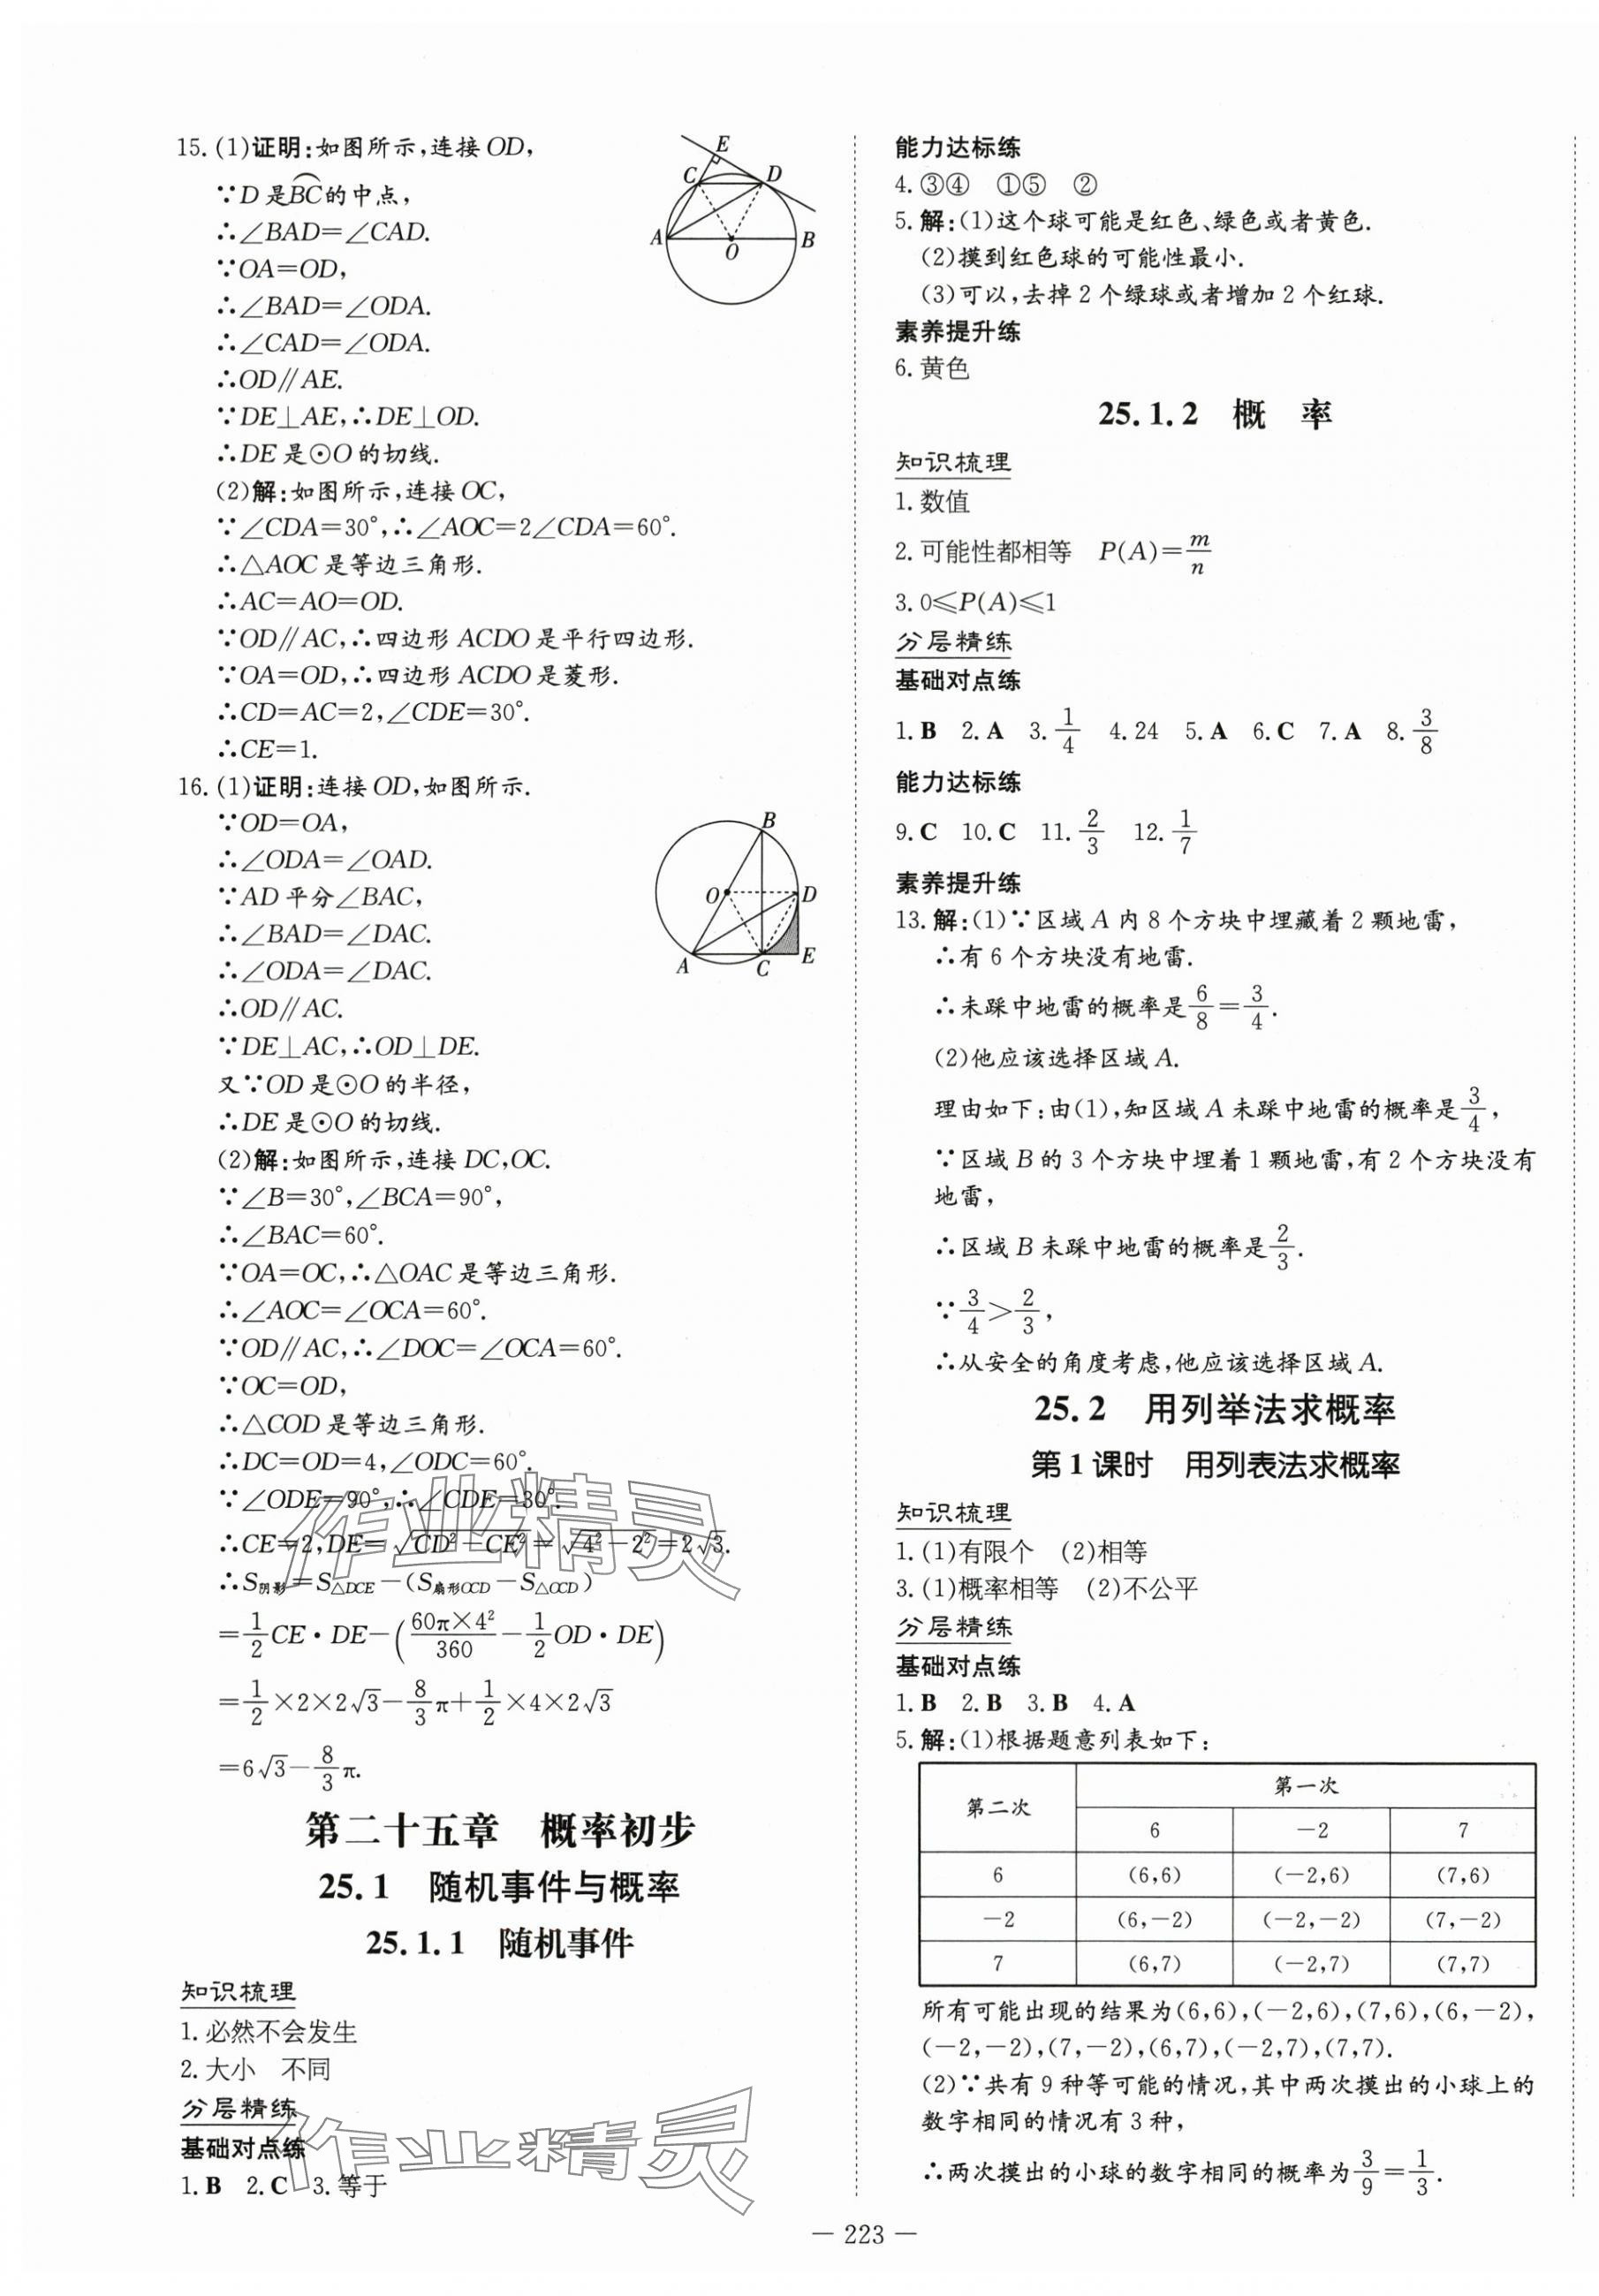 15.(1)证明:如图所示,连接OD,
∵D是BC⌒的中点,
∴∠BAD=∠CAD.
∵OA=OD,
∴∠BAD=∠ODA.
∴∠CAD=∠ODA.
∴OD∥AE.
∵DE⊥AE,∴DE⊥OD.
∴DE是⊙O的切线.
(2)解:如图所示,连接OC,
∵∠CDA=30°,∴∠AOC=2∠CDA=60°.
∴△AOC是等边三角形.
∴AC=AO=OD.
∵OD∥AC,∴四边形ACDO是平行四边形.
∵OA=OD,∴四边形ACDO是菱形.
∴CD=AC=2,∠CDE=30°.
∴CE=1.
E
C
D
A
O
B
16.(1)证明:连接OD,如图所示.
∵OD=OA,
∴∠ODA=∠OAD.
∵AD平分∠BAC,
∴∠BAD=∠DAC.
∴∠ODA=∠DAC.
∴OD∥AC.
∵DE⊥AC,∴OD⊥DE.
又∵OD是⊙O的半径,
∴DE是⊙O的切线.
(2)解:如图所示,连接DC,OC.
∵∠B=30°,∠BCA=90°,
∴∠BAC=60°.
∵OA=OC,∴△OAC是等边三角形.
∴∠AOC=∠OCA=60°.
∵OD∥AC,∴∠DOC=∠OCA=60°.
∵OC=OD,
∴△COD是等边三角形.
∴DC=OD=4,∠ODC=60°.
∵∠ODE=90°,∴∠CDE=30°.
∴CE=2,DE=√(CD²-CE²)=√(4²-2²)=2√3.
∴S阴影=S△DCE-(S扇形OCD-S△OCD)
=1/2CE·DE-(60π×4²/360-1/2OD·DE)
=1/2×2×2√3-8/3π+1/2×4×2√3
=6√3-8/3π.
B
O
D
A
C
E
作业精灵
第二十五章 概率初步
25.1 随机事件与概率
25.1.1 随机事件
知识梳理
1.必然不会发生
2.大小 不同
分层精练
基础对点练
1.B 2.C 3.等于
作业精灵
能力达标练
4.③④ ①⑤ ②
5.解:(1)这个球可能是红色、绿色或者黄色.
(2)摸到红色球的可能性最小.
(3)可以,去掉2个绿球或者增加2个红球.
素养提升练
6.黄色
25.1.2 概 率
知识梳理
1.数值
2.可能性都相等 P(A)=m/n
3.0≤P(A)≤1
分层精练
基础对点练
1.B 2.A 3.1/4 4.24 5.A 6.C 7.A 8.3/8
能力达标练
9.C 10.C 11.2/3 12.1/7
素养提升练
13.解:(1)∵区域A内8个方块中埋藏着2颗地雷,
∴有6个方块没有地雷.
∴未踩中地雷的概率是6/8=3/4.
(2)他应该选择区域A.
理由如下:由(1),知区域A未踩中地雷的概率是3/4,
∵区域B的3个方块中埋着1颗地雷,有2个方块没有
地雷,
∴区域B未踩中地雷的概率是2/3.
∵3/4>2/3,
∴从安全的角度考虑,他应该选择区域A.
25.2 用列举法求概率
第1课时 用列表法求概率
知识梳理
1.(1)有限个 (2)相等
3.(1)概率相等 (2)不公平
分层精练
基础对点练
1.B 2.B 3.B 4.A
5.解:(1)根据题意列表如下:
第二次 第一次
6 -2 7
6 (6,6) (-2,6) (7,6)
-2 (6,-2) (-2,-2) (7,-2)
7 (6,7) (-2,7) (7,7)
所有可能出现的结果为(6,6),(-2,6),(7,6),(6,-2),
(-2,-2),(7,-2),(6,7),(-2,7),(7,7).
(2)∵共有9种等可能的情况,其中两次摸出的小球上的
数字相同的情况有3种,
∴两次摸出的小球的数字相同的概率为3/9=1/3.
— 223 —